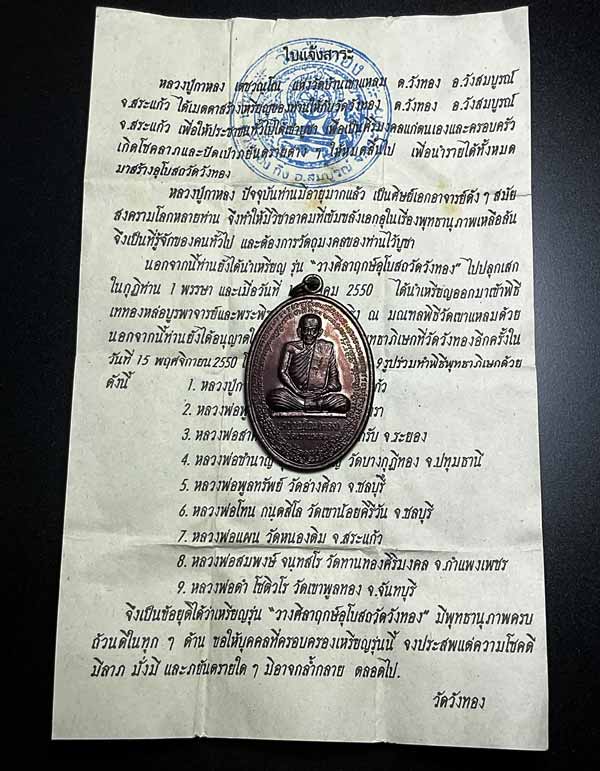 ใบแจ้งสาร
หลวงปู่กาหลง เตชวณฺโณ แห่งวัดบ้านเขาแหลม ต.วังทอง อ.วังสมบูรณ์
จ.สระแก้ว ได้เมตตาสร้างเหรียญของท่านให้กับวัดวังทอง ต.วังทอง อ.วังสมบูรณ์
จ.สระแก้ว เพื่อให้ประชาชนทั่วไปได้เช่าบูชา เพื่อเป็นศิริมงคลแก่ตนเองและครอบครัว
เกิดโชคลาภและปัดเป่าภยันตรายต่าง ๆ ให้หมดสิ้นไป เพื่อนำรายได้ทั้งหมด
มาสร้างอุโบสถวัดวังทอง
หลวงปู่กาหลง ปัจจุบันท่านมีอายุมากแล้ว เป็นศิษย์เอกอาจารย์ดัง ๆ สมัย
สงครามโลกหลายท่าน จึงทำให้มีวิชาอาคมที่เข้มขลังเอกอุในเรื่องพุทธานุภาพเหลือล้น
จึงเป็นที่รู้จักของคนทั่วไป และต้องการวัตถุมงคลของท่านไว้บูชา
นอกจากนี้ท่านยังได้นำเหรียญ รุ่น "วางศิลาฤกษ์อุโบสถวัดวังทอง" ไปปลุกเสก
ในกุฏิท่าน 1 พรรษา และเมื่อวันที่ คม 2550 ได้นำเหรียญออกมาเข้าพิธี
เททองหล่อบูรพาจารย์และพระพุ ณ มณฑลพิธีวัดเขาแหลมด้วย
นอกจากนี้ท่านยังได้อนุญาตใ ทธาภิเษกที่วัดวังทองอีกครั้งใน
วันที่ 15 พฤศจิกายน 2550 9 รูปร่วมทำพิธีพุทธาภิเษกด้วย
ดังนี้
1. หลวงปู่ก แก้ว
2. หลวงพ่อพู รา
3. หลวงพ่อสา ครับ จ.ระยอง
4. หลวงพ่อชำนาญ วัดบางกุฎีทอง จ.ปทุมธานี
5. หลวงพ่อพูลทรัพย์ วัดอ่างศิลา จ.ชลบุรี
6. หลวงพ่อโทน กนฺตสีโล วัดเขาน้อยคีรีวัน จ.ชลบุรี
7. หลวงพ่อแผน วัดหนองติม จ.สระแก้ว
8. หลวงพ่อสมพงษ์ จนฺทสโร วัดทานทองศิริมงคล จ.กำแพงเพชร
9. หลวงพ่อดำ โชติวโร วัดเขาพูลทอง จ.จันทบุรี
จึงเป็นข้อยุติได้ว่าเหรียญรุ่น "วางศิลาฤกษ์อุโบสถวัดวังทอง" มีพุทธานุภาพครบ
ถ้วนดีในทุก ๆ ด้าน ขอให้บุคคลที่ครอบครองเหรียญรุ่นนี้ จงประสพแต่ความโชคดี
มีลาภ มั่งมี และภยันตรายใด ๆ มิอาจกล้ำกลาย ตลอดไป.
วัดวังทอง